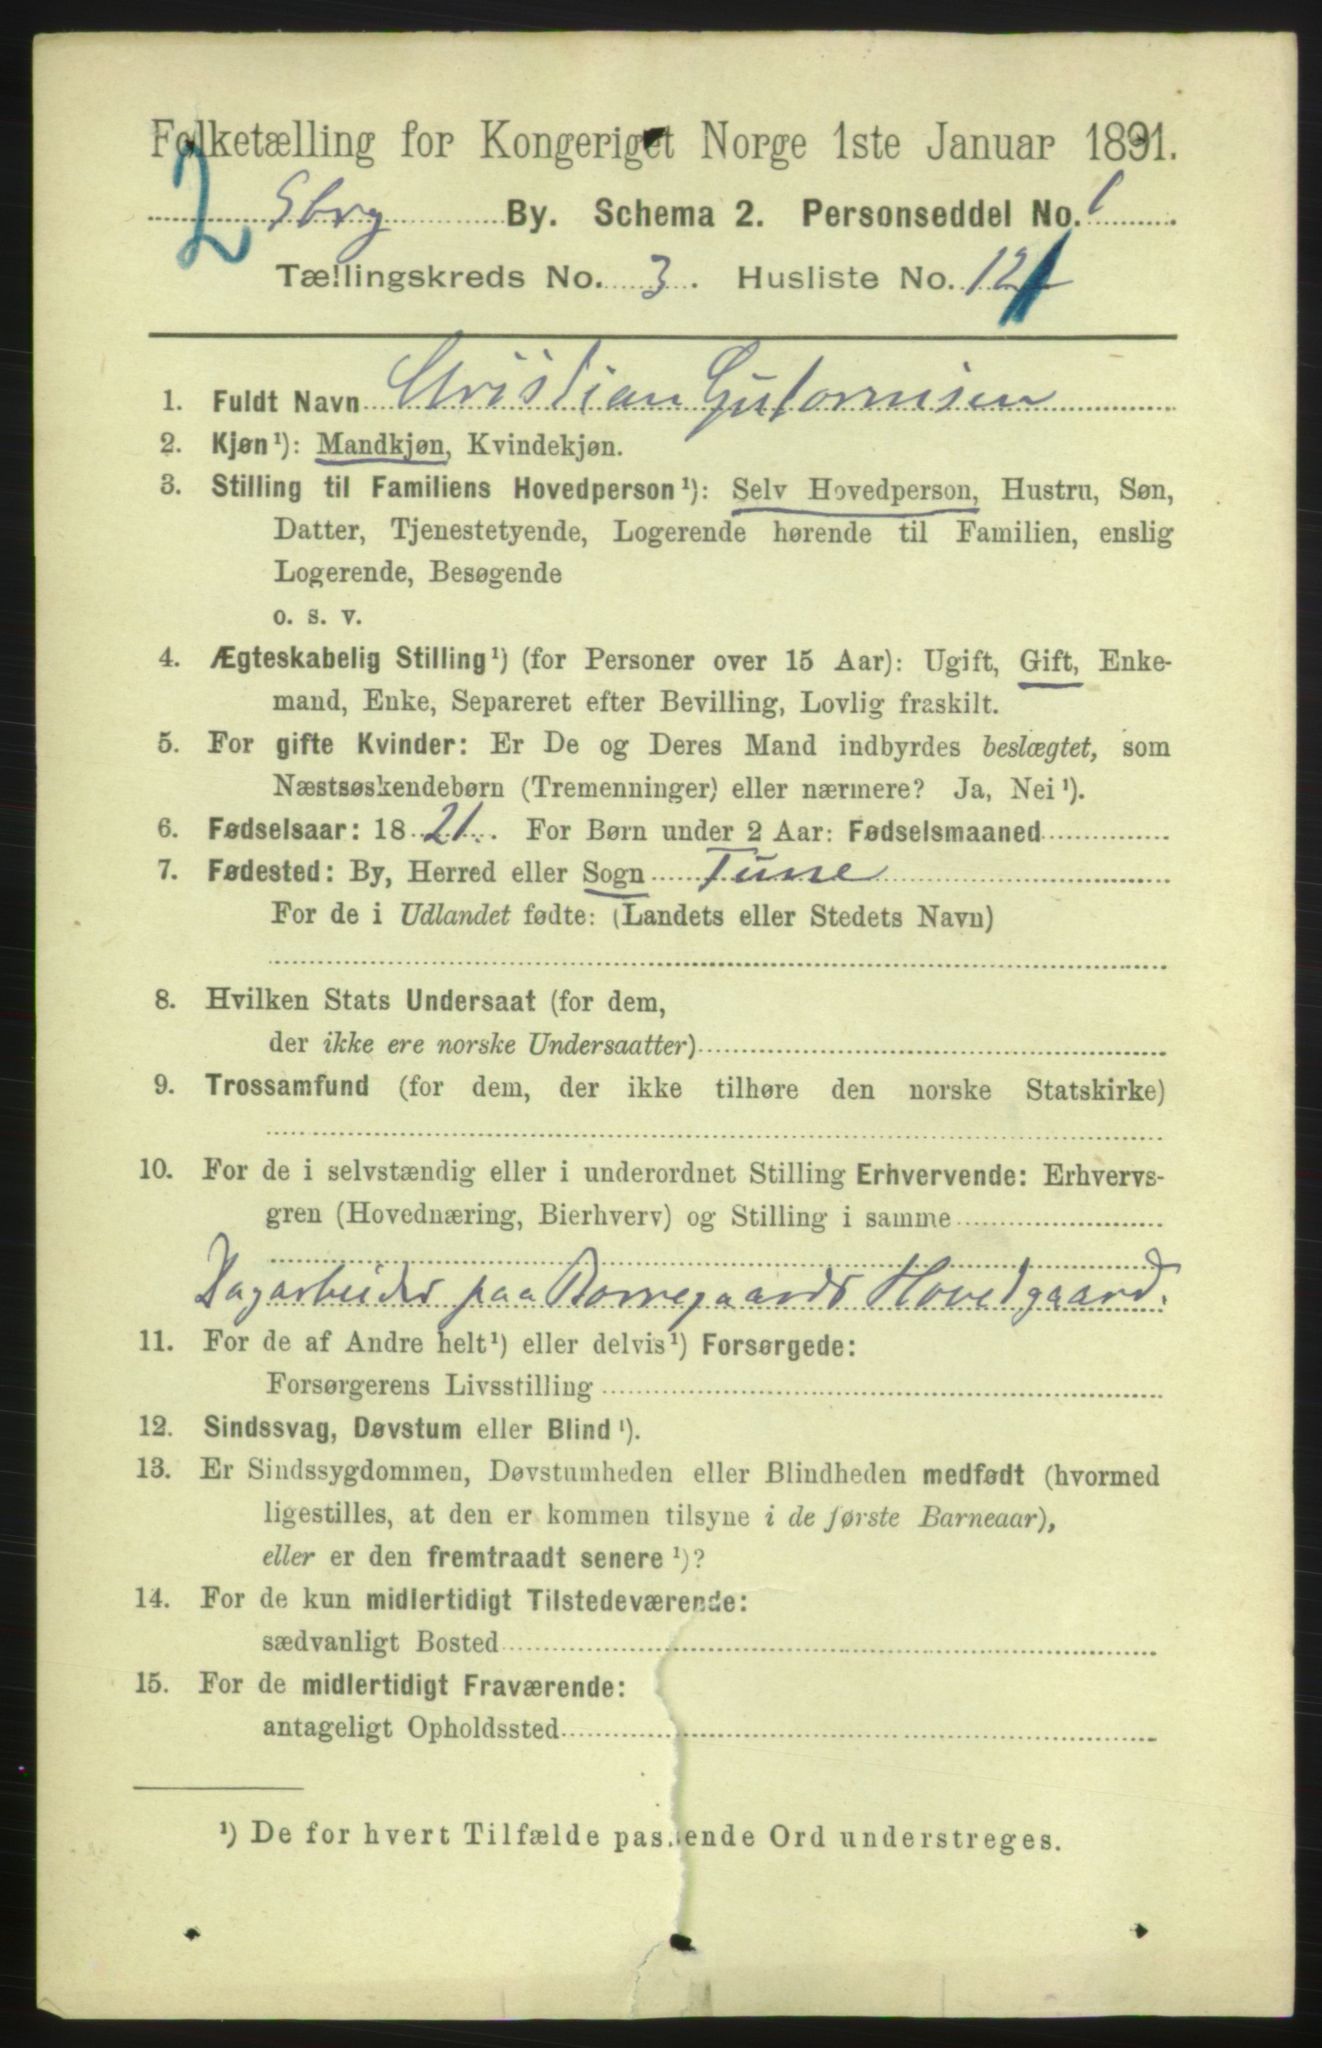 Folketælling for Kongeriget Norge 1ste Januar 1891.
2 Sbrg By. Schema 2. Personseddel No. 1.
Tællingskreds No. 3. Husliste No. 12
1. Fuldt Navn Christian Gutormsen
2. Kjøn¹): Mandkjøn, Kvindekjøn.
3. Stilling til Familiens Hovedperson¹): Selv Hovedperson, Hustru, Søn,
Datter, Tjenestetyende, Logerende hørende til Familien, enslig
Logerende, Besøgende
o. s. v.
4. Ægteskabelig Stilling¹) (for Personer over 15 Aar): Ugift, Gift, Enke-
mand, Enke, Separeret efter Bevilling, Lovlig fraskilt.
5. For gifte Kvinder: Er De og Deres Mand indbyrdes beslægtet, som
Næstsøskendebørn (Tremenninger) eller nærmere? Ja, Nei¹).
6. Fødselsaar: 1821. For Børn under 2 Aar: Fødselsmaaned
7. Fødested: By, Herred eller Sogn Tune
For de i Udlandet fødte: (Landets eller Stedets Navn)
8. Hvilken Stats Undersaat (for dem,
der ikke ere norske Undersaatter)
9. Trossamfund (for dem, der ikke tilhøre den norske Statskirke)
10. For de i selvstændig eller i underordnet Stilling Erhvervende: Erhvervs-
gren (Hovednæring, Bierhverv) og Stilling i samme
Dagarbeider paa Borregaards Hovedgaard.
11. For de af Andre helt¹) eller delvis¹) Forsørgede:
Forsørgerens Livsstilling
12. Sindssvag, Døvstum eller Blind¹).
13. Er Sindssygdommen, Døvstumheden eller Blindheden medfødt (hvormed
ligestilles, at den er kommen tilsyne i de første Barneaar),
eller er den fremtraadt senere¹)?
14. For de kun midlertidigt Tilstedeværende:
sædvanligt Bosted
15. For de midlertidigt Fraværende:
antageligt Opholdssted
¹) De for hvert Tilfælde passende Ord understreges.